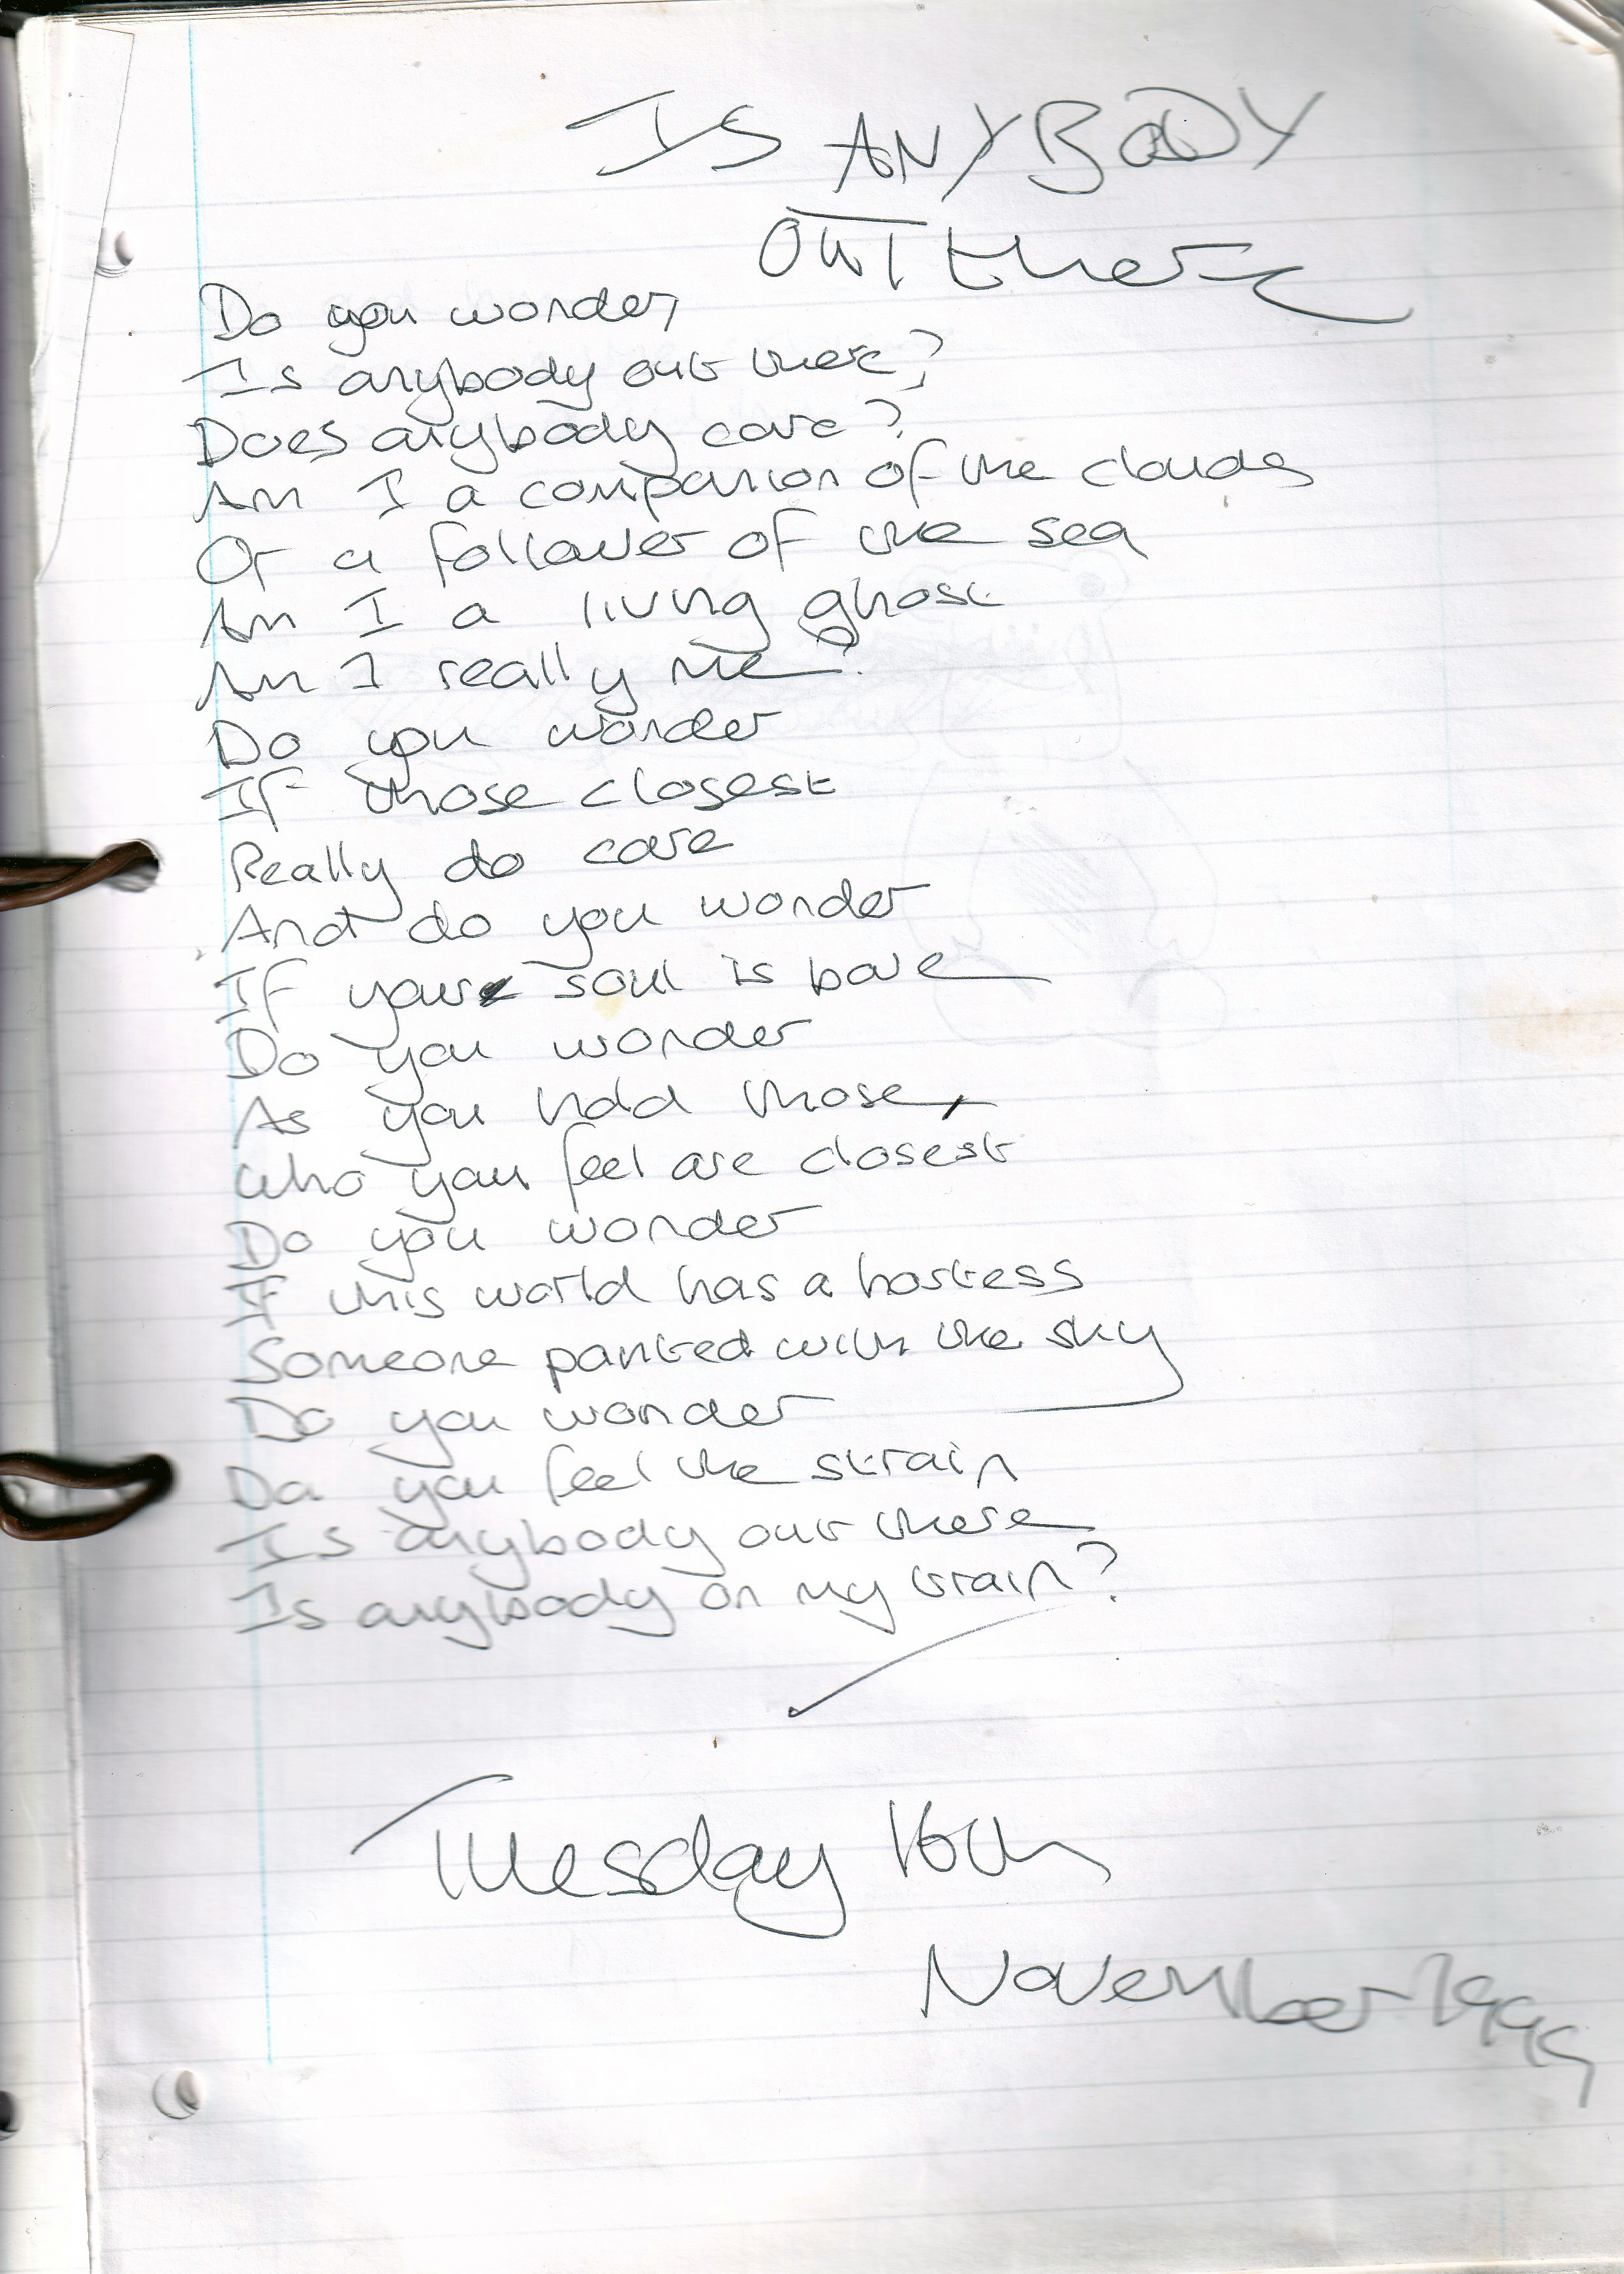 IS ANYBODY
OUT there
Do you wonder,
Is anybody out there?
Does anybody care?
Am I a companion of the clouds
Or a follower of the sea
Am I a living ghost
Am I really me?
Do you wonder
If those closest
Really do care
And do you wonder
If your soul is bare
Do you wonder
As you hold those,
Who you feel are closest
Do you wonder
If this world has a hostess
Someone painted with the sky
Do you wonder
Do you feel the strain
Is anybody out there
Is anybody on my train?
Tuesday 16th
November 1999